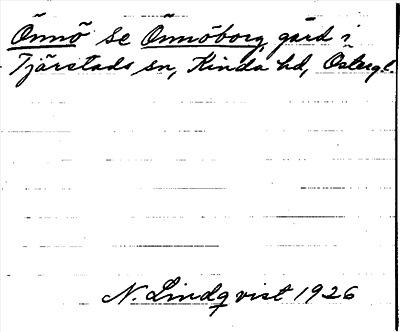 Önnö se Önnöborg, gård i
Tjärstads sn, Kinda hd, Östergl.
N. Lindqvist 1926